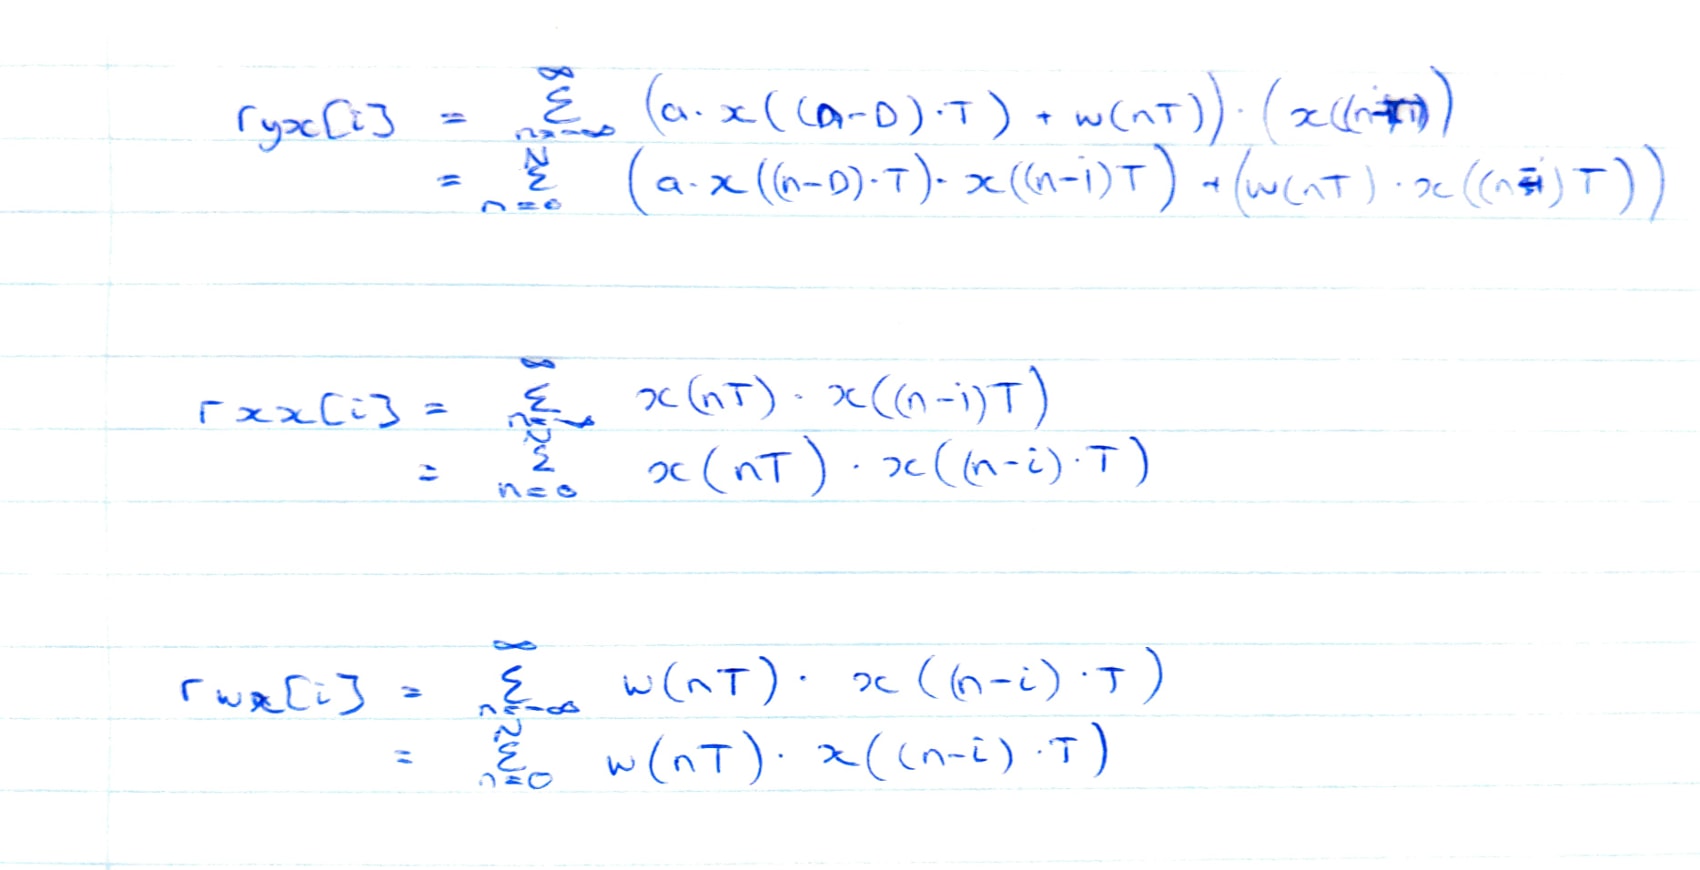 ryx[i] = ∞ Σ n=-∞ (a·x((n-D)·T) + w(nT))·(x((n-i)T))
= N Σ n=0 (a·x((n-D)·T)·x((n-i)T) + (w(nT)·x((n-i)T))
rxx[i] = ∞ Σ n=-∞ x(nT)·x((n-i)T)
= N Σ n=0 x(nT)·x((n-i)·T)
rwx[i] = ∞ Σ n=-∞ w(nT)·x((n-i)·T)
= N Σ n=0 w(nT)·x((n-i)·T)